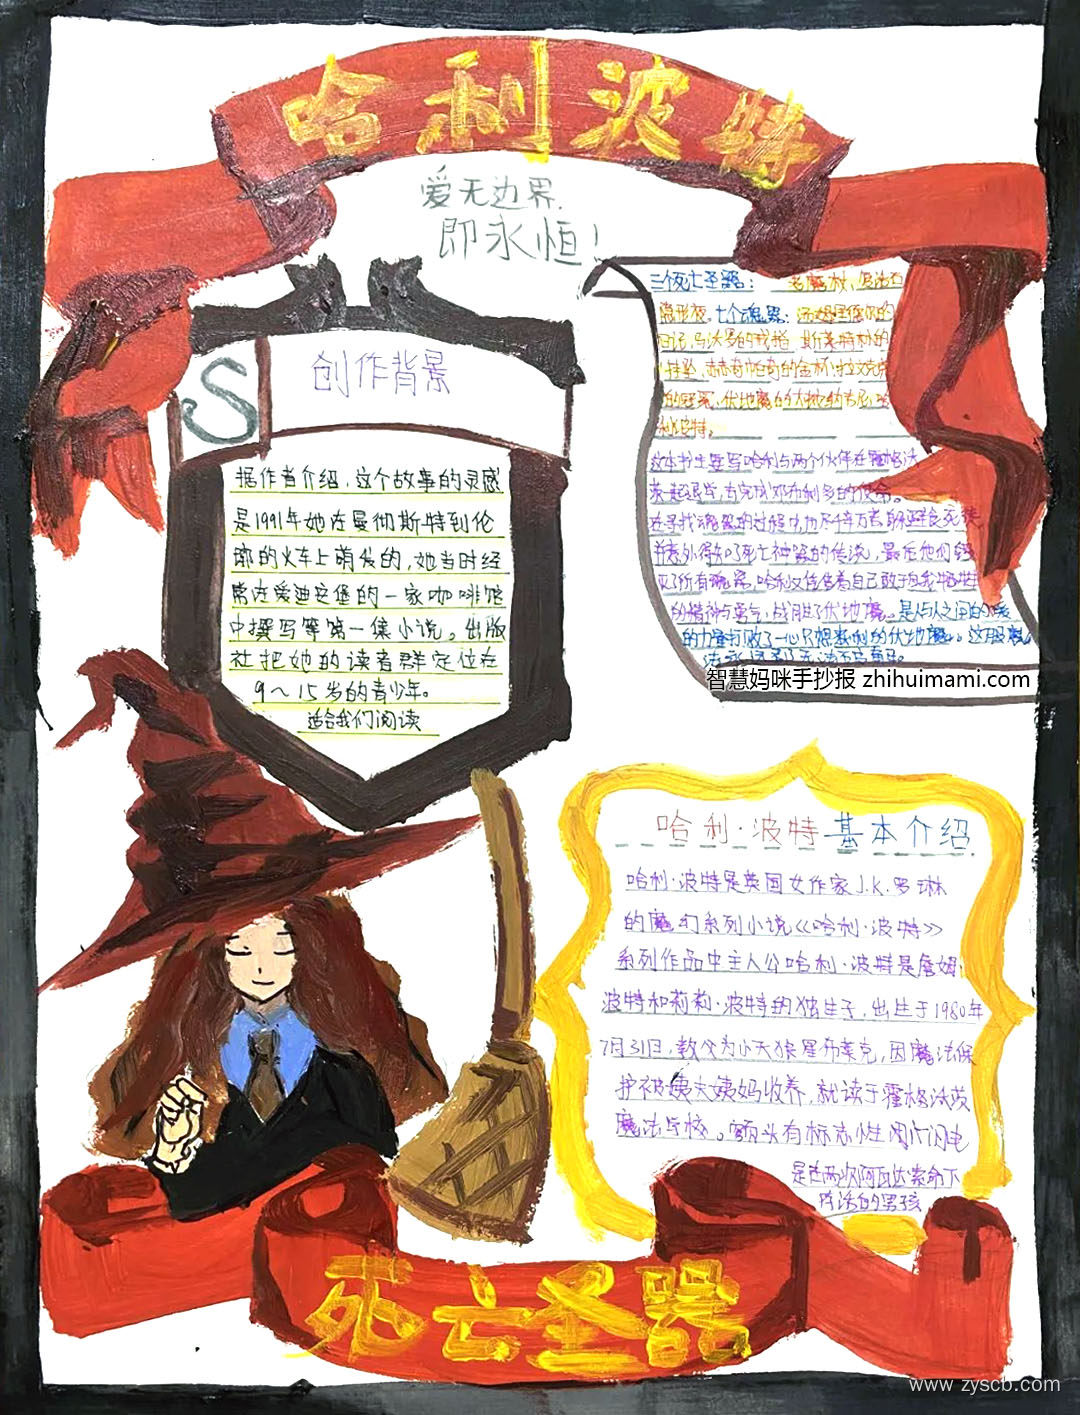 哈利波特
爱无边界.
即永恒!
S
创作背景
据作者介绍,这个故事的灵感
是1991年她在曼彻斯特到伦
敦的火车上萌发的,她当时经
常在爱迪宝堡的一家咖啡馆
中撰写等第一集小说。出版
社把她的读者群定位在
9~15岁的青少年。
适合我们阅读
三个死亡圣器: 老魔杖,复活石
隐形衣.七个魂器:汤姆里德尔的
日记,马沃罗的戒指 斯莱特林的
挂坠,赫奇帕奇的金杯
的冠冕,伏地魔的大蛇纳吉尼,哈
利波特。
这本书主要写哈利与两个伙伴在霍格沃
去完成邓布利多的使命。
在寻找魂器的过程中,历尽千辛万苦躲避食死徒
并意外得知了死亡神器的传说,最后他们毁
灭了所有魂器,哈利又凭借着自己敢于自我牺牲
的精神与勇气,战胜了伏地魔。是人与人之间的爱
的力量打败了一心只想杀利的伏地魔。这股
智慧妈咪手抄报 zhihuimami.com
哈利·波特基本介绍
哈利·波特是英国女作家J.K.罗琳
的魔幻系列小说《哈利·波特》
系列作品中主人公哈利·波特是詹姆
波特和莉莉·波特的独生子,出生于1980年
7月31日,教父为小天狼星布莱克,因魔法保
护被姨夫姨妈收养,就读于霍格沃茨
魔法学校。额头有标志性闪电
是在两次阿瓦达索命下
存活的男孩
死亡圣器
www.zyscb.com